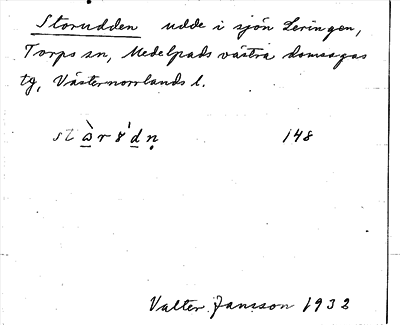 Storudden udde i sjön Leringen,
Torps sn, Medelpads västra domsagas
tg, Västernorrlands l.
148
Valter Jansson 1932